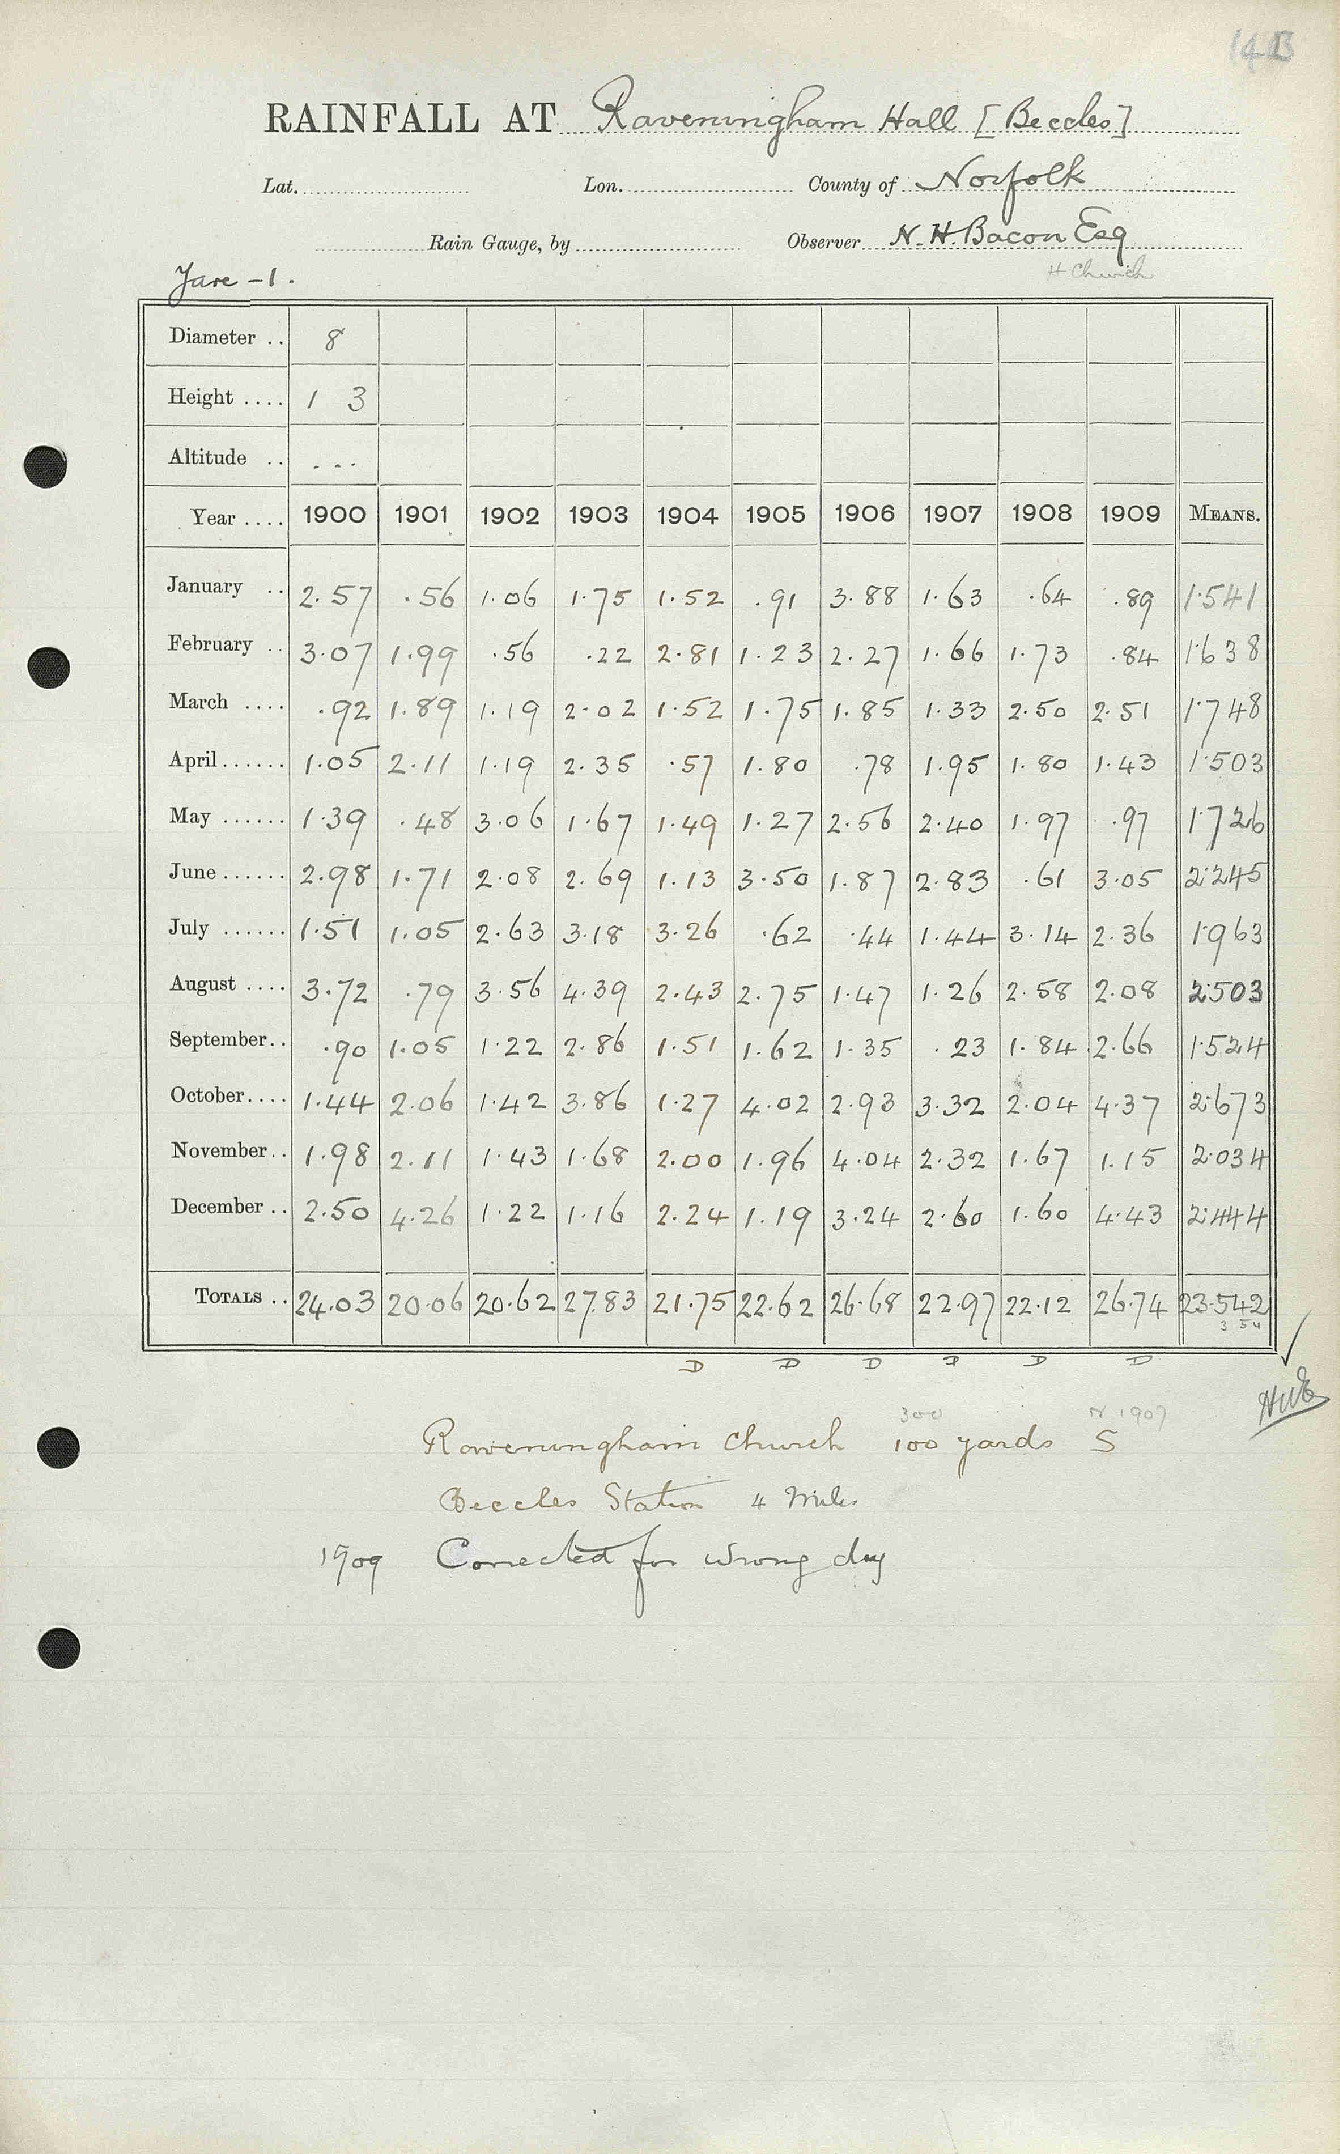 RAINFALL AT Raveningham Hall [Beccles]
Lat. Lon. County of Norfolk
Rain Gauge, by Observer N. H. Bacon Esq
H Church
Yare - 1.
Diameter .. 8
Height .... 1 3
Altitude .. ...
Year .... 1900 1901 1902 1903 1904 1905 1906 1907 1908 1909 MEANS.
January .. 2.57 .56 1.06 1.75 1.52 .91 3.88 1.63 .64 .89 1.541
February .. 3.07 1.99 .56 .22 2.81 1.23 2.27 1.66 1.73 .84 1.638
March .... .92 1.89 1.19 2.02 1.52 1.75 1.85 1.33 2.50 2.51 1.748
April...... 1.05 2.11 1.19 2.35 .57 1.80 .78 1.95 1.80 1.43 1.503
May ...... 1.39 .48 3.06 1.67 1.49 1.27 2.56 2.40 1.97 .97 1.726
June...... 2.98 1.71 2.08 2.69 1.13 3.50 1.87 2.83 .61 3.05 2.245
July ...... 1.51 1.05 2.63 3.18 3.26 .62 .44 1.44 3.14 2.36 1.963
August .... 3.72 .79 3.56 4.39 2.43 2.75 1.47 1.26 2.58 2.08 2.503
September.. .90 1.05 1.22 2.86 1.51 1.62 1.35 .23 1.84 2.66 1.524
October.... 1.44 2.06 1.42 3.86 1.27 4.02 2.93 3.32 2.04 4.37 2.673
November.. 1.98 2.11 1.43 1.68 2.00 1.96 4.04 2.32 1.67 1.15 2.034
December .. 2.50 4.26 1.22 1.16 2.24 1.19 3.24 2.60 1.60 4.43 2.444
TOTALS .. 24.03 20.06 20.62 27.83 21.75 22.62 26.68 22.97 22.12 26.74 23.542
3 54
D D D D D D
300 N 1907
Raveningham Church 100 yards S
Beccles Station 4 Miles
1909 Corrected for wrong day